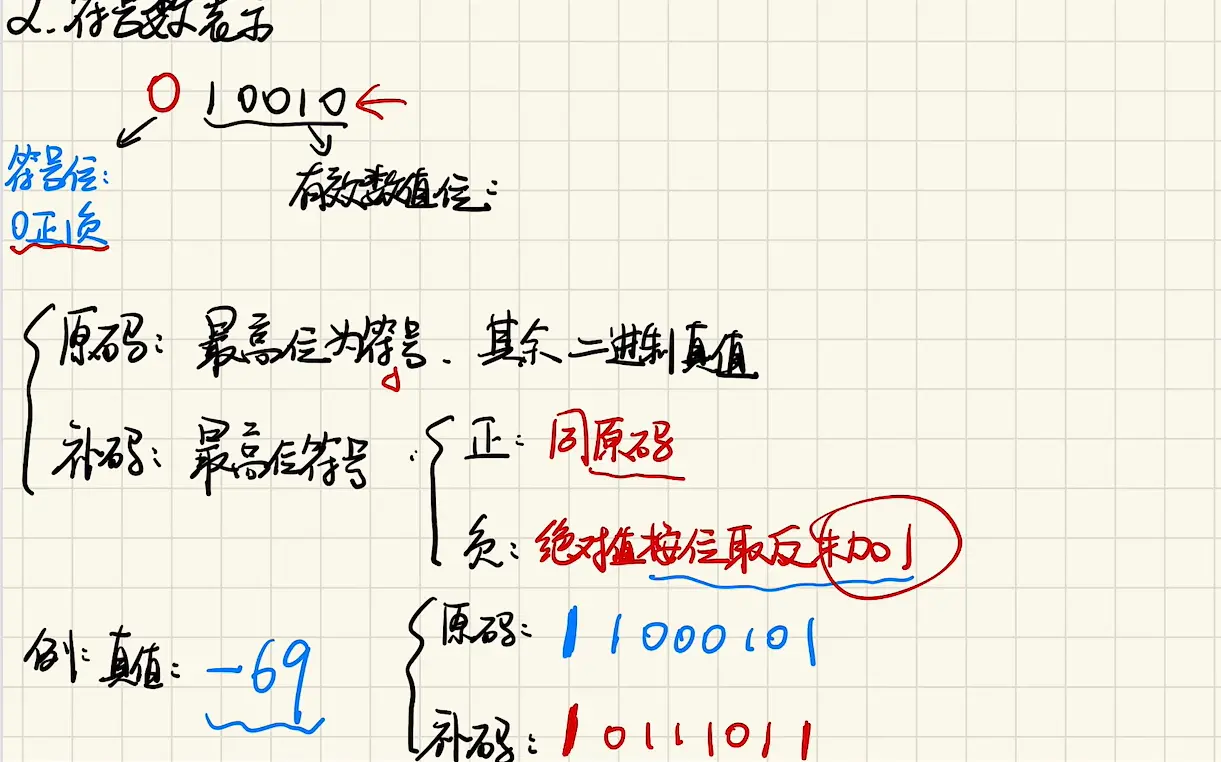 2. 符号数表示
0 10010 ←
符号位:
有效数值位:
0正1负
原码: 最高位为符号、其余二进制真值
补码: 最高位符号
正: 同原码
负: 绝对值按位取反末加1
例: 真值: -69
原码: 11000101
补码: 10111011